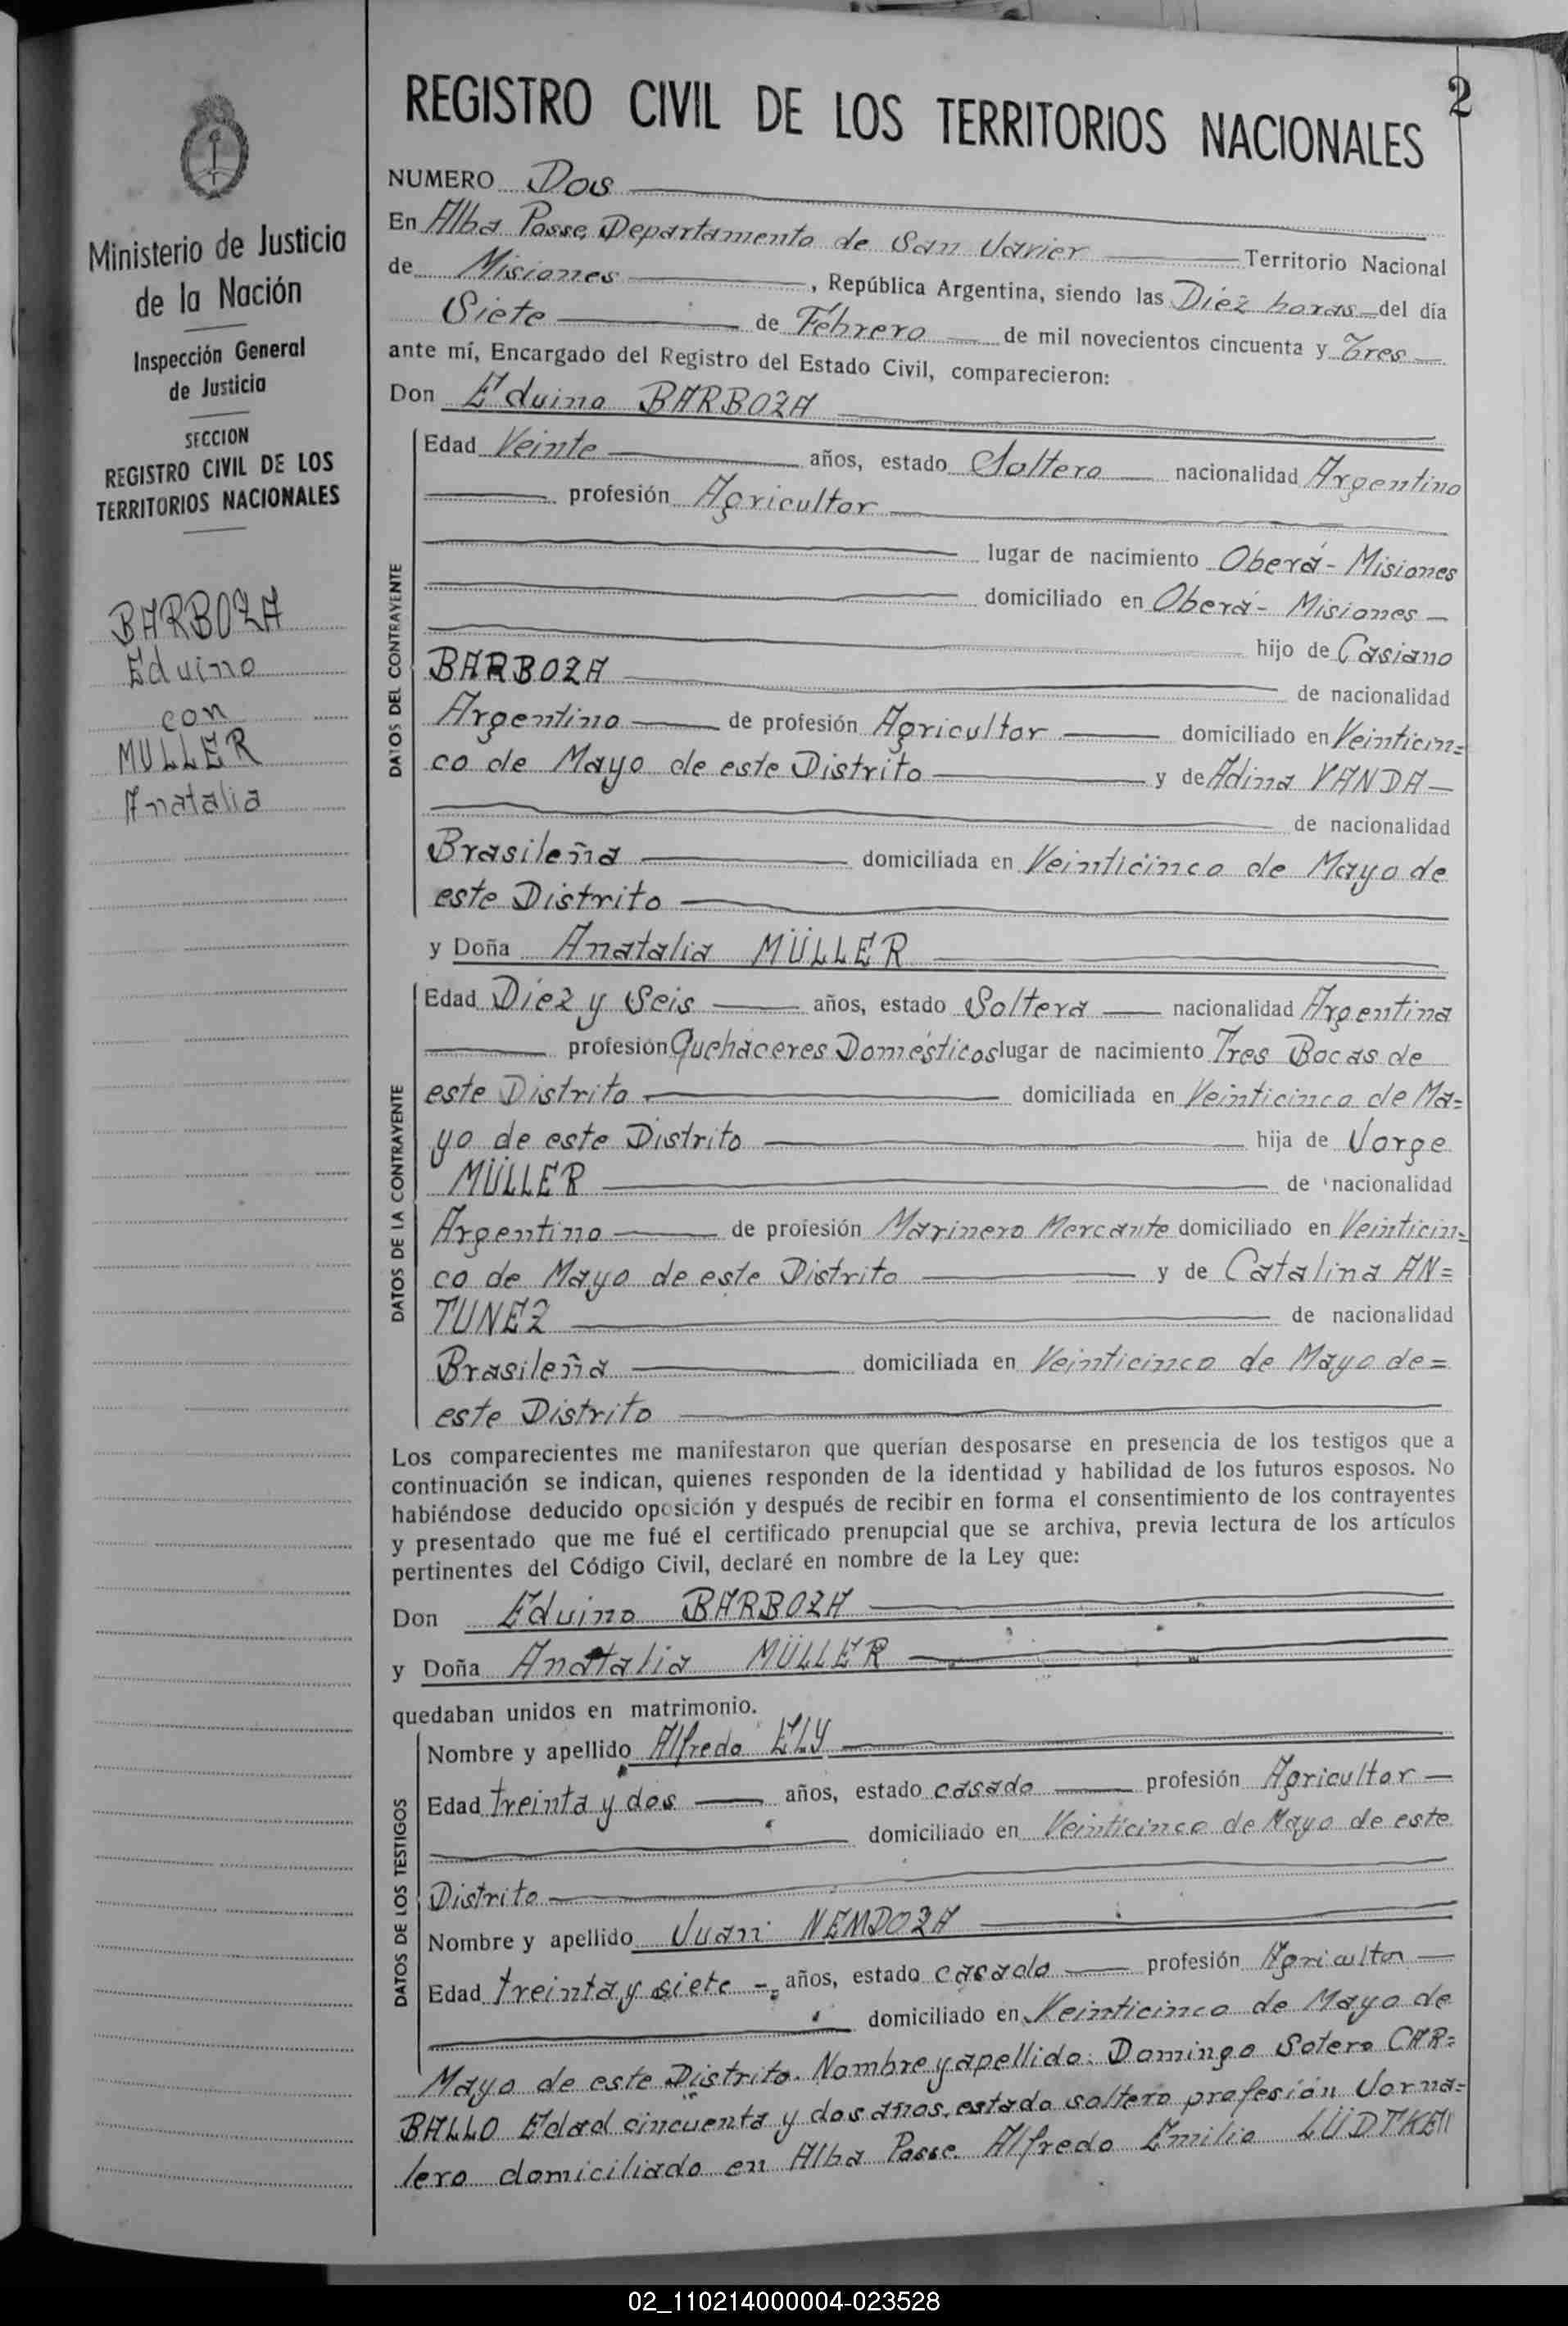 2
REGISTRO CIVIL DE LOS TERRITORIOS NACIONALES
Ministerio de Justicia
de la Nación
Inspección General
de Justicia
SECCION
REGISTRO CIVIL DE LOS
TERRITORIOS NACIONALES
BARBOZA
Eduino
con
MULLER
Anatalia
NUMERO Dos
En Alba Posse, Departamento de San Javier Territorio Nacional
de Misiones, República Argentina, siendo las Diez horas del día
Siete de Febrero de mil novecientos cincuenta y Tres
ante mí, Encargado del Registro del Estado Civil, comparecieron:
Don Eduino BARBOZA
DATOS DEL CONTRAYENTE
Edad Veinte años, estado Soltero nacionalidad Argentino
profesión Agricultor
lugar de nacimiento Oberá - Misiones
domiciliado en Oberá - Misiones
hijo de Casiano
BARBOZA de nacionalidad
Argentino de profesión Agricultor domiciliado en Veinticin=
co de Mayo de este Distrito y de Adina YANDA
de nacionalidad
Brasileña domiciliada en Veinticinco de Mayo de
este Distrito
y Doña Anatalia MÜLLER
DATOS DE LA CONTRAYENTE
Edad Diez y Seis años, estado Soltera nacionalidad Argentina
profesión Quehaceres Domésticos lugar de nacimiento Tres Bocas de
este Distrito domiciliada en Veinticinco de Ma=
yo de este Distrito hija de Jorge
MÜLLER de nacionalidad
Argentino de profesión Marinero Mercante domiciliado en Veinticin=
co de Mayo de este Distrito y de Catalina AN=
TUNEZ de nacionalidad
Brasileña domiciliada en Veinticinco de Mayo de=
este Distrito
Los comparecientes me manifestaron que querían desposarse en presencia de los testigos que a
continuación se indican, quienes responden de la identidad y habilidad de los futuros esposos. No
habiéndose deducido oposición y después de recibir en forma el consentimiento de los contrayentes
y presentado que me fué el certificado prenupcial que se archiva, previa lectura de los artículos
pertinentes del Código Civil, declaré en nombre de la Ley que:
Don Eduino BARBOZA
y Doña Anatalia MÜLLER
quedaban unidos en matrimonio.
DATOS DE LOS TESTIGOS
Nombre y apellido Alfredo ELY
Edad treinta y dos años, estado casado profesión Agricultor
domiciliado en Veinticinco de Mayo de este
Distrito
Nombre y apellido Juan NEMDOZA
Edad treinta y siete años, estado casado profesión Agricultor
domiciliado en Veinticinco de Mayo de
Mayo de este Distrito. Nombre y apellido: Domingo Sotero CAR=
BALLO Edad cincuenta y dos años, estado soltero profesión Jorna=
lero domiciliado en Alba Posse. Alfredo Emilio LÜDTKE"
02_110214000004-023528